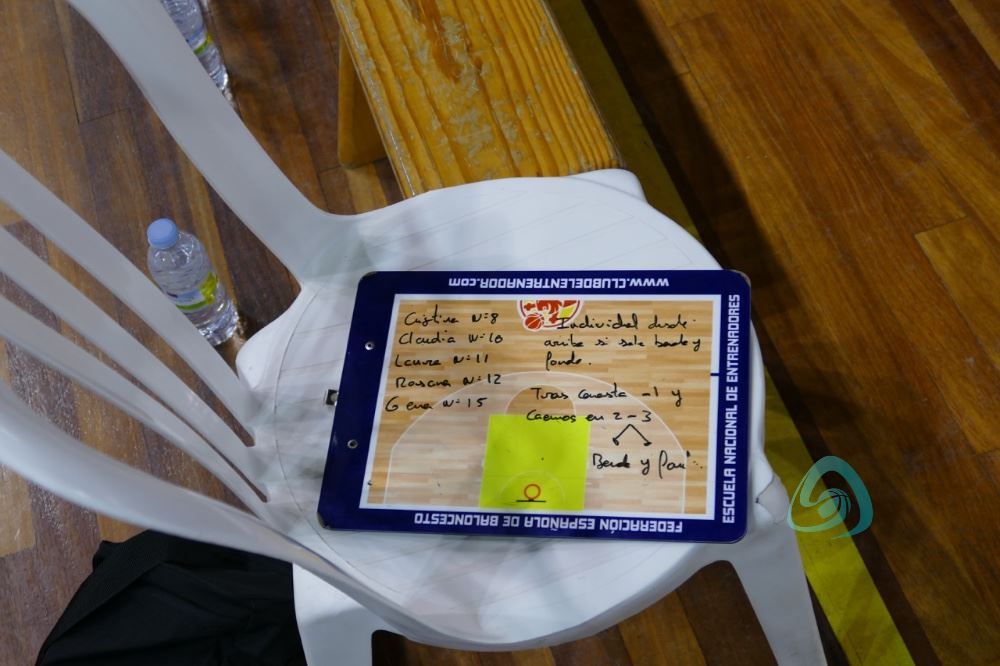 WWW.CLUBDELENTRENADOR.com
Claudia Nº 10
Laura Nº 11
Rosana Nº 12
Gema Nº 15
Individual desde
arriba si sale bande y
fondo.
Tras canasta -1 y
Caemos en 2-3
y
ESCUELA NACIONAL DE ENTRENADORES
FEDERACIÓN ESPAÑOLA DE BALONCESTO